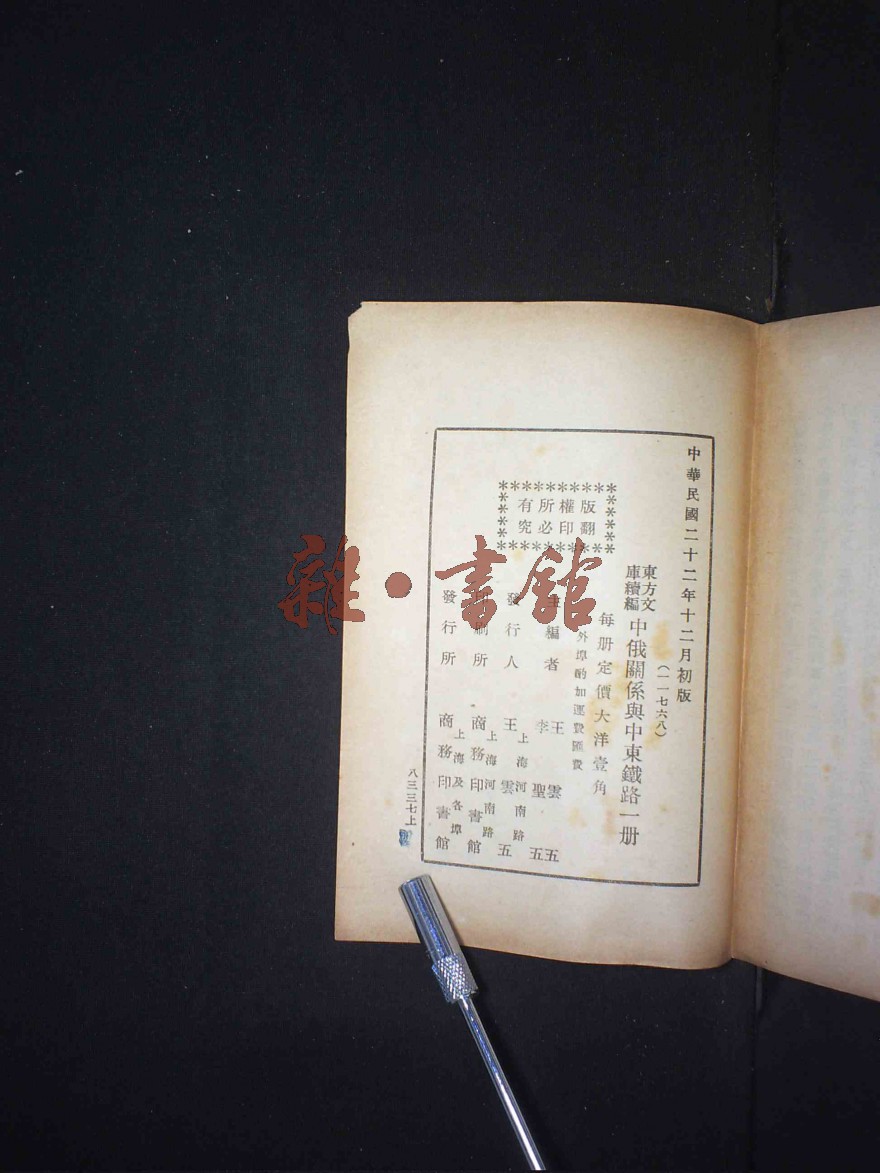 中華民國二十二年十二月初版
(一一七六八)
東方文
庫續編
中俄關係與中東鐵路一册
每册定價大洋壹角
外埠酌加運費匯費
版權所有
翻印必究
主編者
王雲五
李聖五
發行人
上海河南路
王雲五
印刷所
上海河南路
商務印書館
發行所
上海及各埠
商務印書館
八三三七上
雜·書館